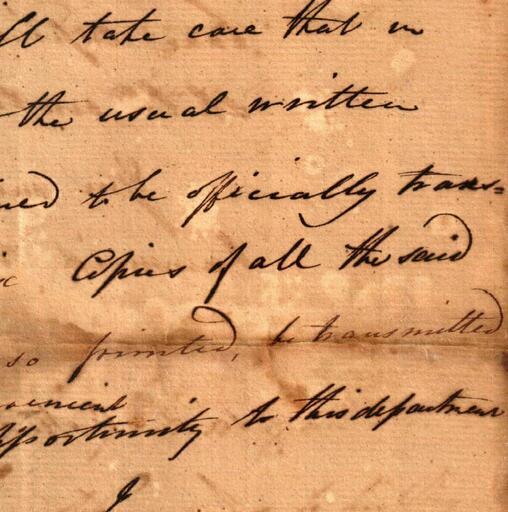 ill take care that in
the usual written
ired to be officially trans=
Copies of all the said
so printed, be transmitted
venient
opportunity to this department
I